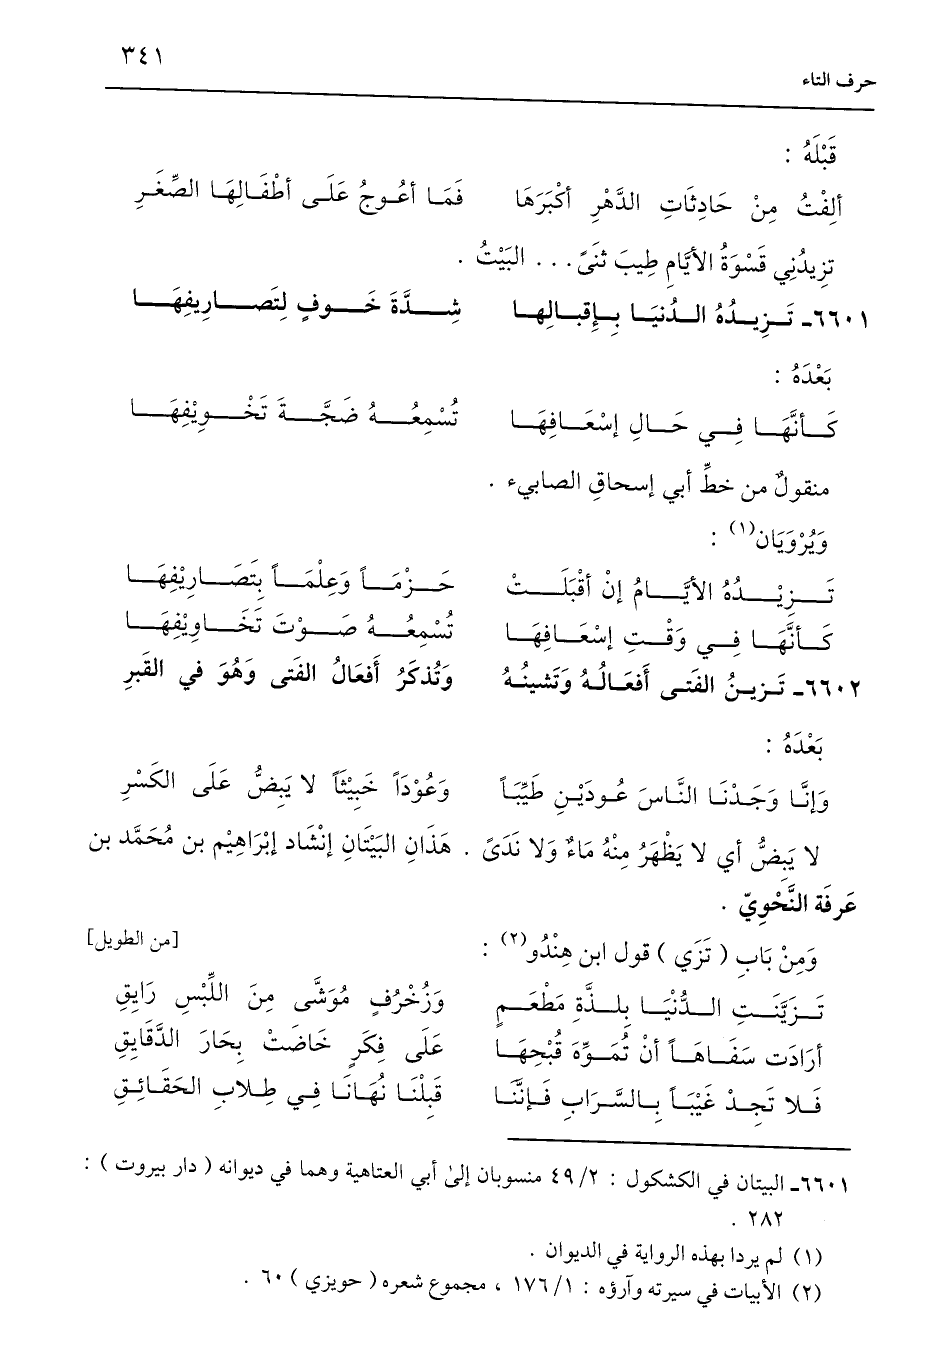 ٣٤١
حرف التاء
قَبْلَهُ :
ألِفْتُ مِنْ حَادِثَاتِ الدَّهْرِ أكْبَرَهَا فَمَا أعُوجُ عَلَى أطْفَالِهَا الصِّغَرِ
تزِيدُنِي قَسْوَةُ الأيَّامِ طِيبَ ثنَىً . . . البَيْتُ .
٦٦٠١ـ تَزِيدُهُ الدُنيَا بِإقبَالِهَا شِدَّةَ خَوفٍ لِتَصارِيفِهَا
بَعْدَهُ :
كَأنَّهَا فِي حَالِ إسْعَافِهَا تُسْمِعُهُ ضَجَّةَ تَخْوِيْفِهَا
منقولٌ من خطِّ أبي إسحاقِ الصابيء .
وَيُرْوَيَان(١) :
تَزِيْدُهُ الأيَّامُ إنْ أقْبَلَتْ حَزْمَاً وَعِلْمَاً بِتَصَارِيْفِهَا
كَأنَّهَا فِي وَقْتِ إسْعَافِهَا تُسْمِعُهُ صَوْتَ تَخَاوِيْفِهَا
٦٦٠٢ـ تَزِينُ الفَتى أَفعَالُهُ وَتَشينُهُ وَتُذكَرُ أَفعَالُ الفَتى وَهُوَ في القَبرِ
بَعْدَهُ :
وَإنَّا وَجَدْنَا النَّاسَ عُودَيْنِ طَيِّبَاً وَعُوْدَاً خَبِيْثَاً لا يَبِضُّ عَلَى الكَسْرِ
لا يَبِضُّ أي لا يَظْهَرُ مِنْهُ مَاءٌ وَلا نَدَىً . هَذَانِ البَيْتَانِ إنْشَاد إبْرَاهِيْم بن مُحَمَّد بن
عَرفَة النَّحْوِيّ .
وَمِنْ بَابِ ( تَزَي ) قول ابن هِنْدُو(٢) : [من الطويل]
تَزَيَّنَتِ الدُّنْيَا بِلذَّةِ مَطْعَمٍ وَزُخْرُفٍ مُوَشَّى مِنَ اللِّبْسِ رَايِقِ
أرَادَت سَفَاهَاً أنْ تُمَوِّهَ قُبْحِهَا عَلَى فِكَرٍ خَاضَتْ بِحَارَ الدَّقَايِقِ
فَلا تَجِدْ عَيْبَاً بِالسَّرَابِ فَإنَّنَا قَبِلْنَا نُهَانَا فِي طِلابِ الحَقَائِقِ
٦٦٠١ـ البيتان في الكشكول : ٢/ ٤٩ منسوبان إلىٰ أبي العتاهية وهما في ديوانه ( دار بيروت ) :
٢٨٢ .
(١) لم يردا بهذه الرواية في الديوان .
(٢) الأبيات في سيرته وآرؤه : ١/ ١٧٦ ، مجموع شعره ( حويزي ) ٦٠ .